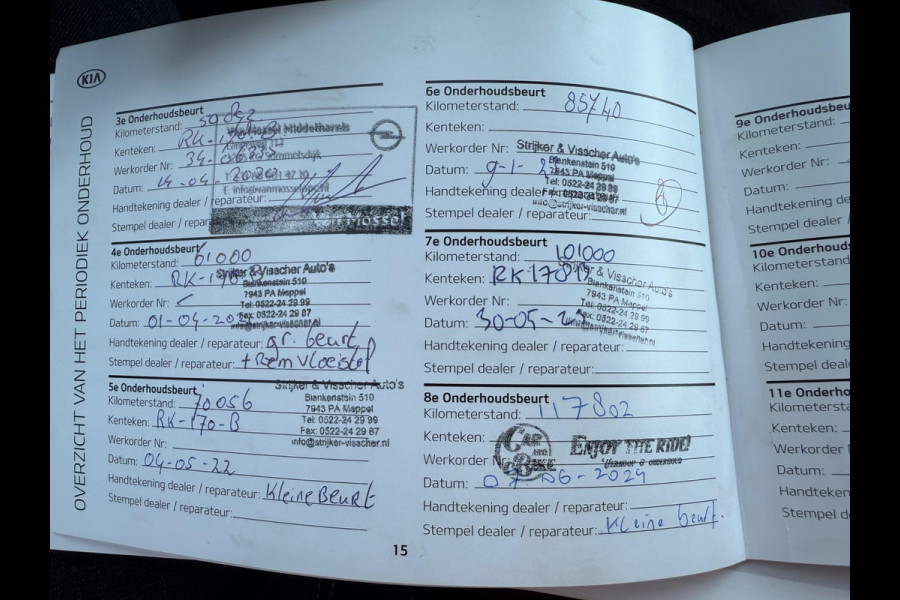 KIA
OVERZICHT VAN HET PERIODIEK ONDERHOUD
3e Onderhoudsbeurt
Kilometerstand:
Kenteken:
Werkorder Nr:
Datum: 14-04-
Handtekening dealer / reparateur:
Stempel dealer / repar
Van Mossel Middelharnis
E. info@vanmossel
Van Mossel
4e Onderhoudsbeurt
Kilometerstand: 61000
Kenteken: RK-170
Werkorder Nr:
Datum: 01-04-20
Handtekening dealer / reparateur: gr. beurt
Stempel dealer / reparateur: + Remvloeistof
Strijker & Visscher Auto's
Blankenstein 510
7943 PA Meppel
Tel: 0522-24 29 99
Fax: 0522-24 29 87
info@strijker-visscher.nl
5e Onderhoudsbeurt
Kilometerstand: 70056
Kenteken: RK-170-B
Werkorder Nr:
Datum: 04-05-22
Handtekening dealer / reparateur: Kleine Beurt
Stempel dealer / reparateur:
Strijker & Visscher Auto's
Blankenstein 510
7943 PA Meppel
Tel: 0522-24 29 99
Fax: 0522-24 29 87
info@strijker-visscher.nl
15
6e Onderhoudsbeurt
Kilometerstand: 85740
Kenteken:
Werkorder Nr:
Datum: 9-1-
Handtekening dealer
Stempel dealer / reparateur:
Strijker & Visscher Auto's
Blankenstein 510
7943 PA Meppel
Tel: 0522-24 29 99
Fax: 0522-24 29 87
info@strijker-visscher.nl
7e Onderhoudsbeurt
Kilometerstand: 101000
Kenteken: RK170B
Werkorder Nr:
Datum: 30-05-
Handtekening dealer / reparateur:
Stempel dealer / reparateur:
Strijker & Visscher Auto's
Blankenstein 510
7943 PA Meppel
Tel: 0522-24 29 99
Fax: 0522-24 29 87
info@strijker-visscher.nl
8e Onderhoudsbeurt
Kilometerstand: 117802
Kenteken:
Werkorder Nr:
Datum: 07-06-2024
Handtekening dealer / reparateur:
Stempel dealer / reparateur: Kleine beurt.
CAR
AND
BIKE
ENJOY THE RIDE!
VERKOOP & ONDERHOUD
9e Onderhoudsbeu
Kilometerstand:
Kenteken:
Werkorder Nr:
Datum:
Handtekening de
Stempel dealer /
10e Onderhouds
Kilometerstand
Kenteken:
Werkorder Nr:
Datum:
Handtekening
Stempel deal
11e Onderho
Kilometerst
Kenteken:
Werkorder
Datum:
Handteken
Stempel d